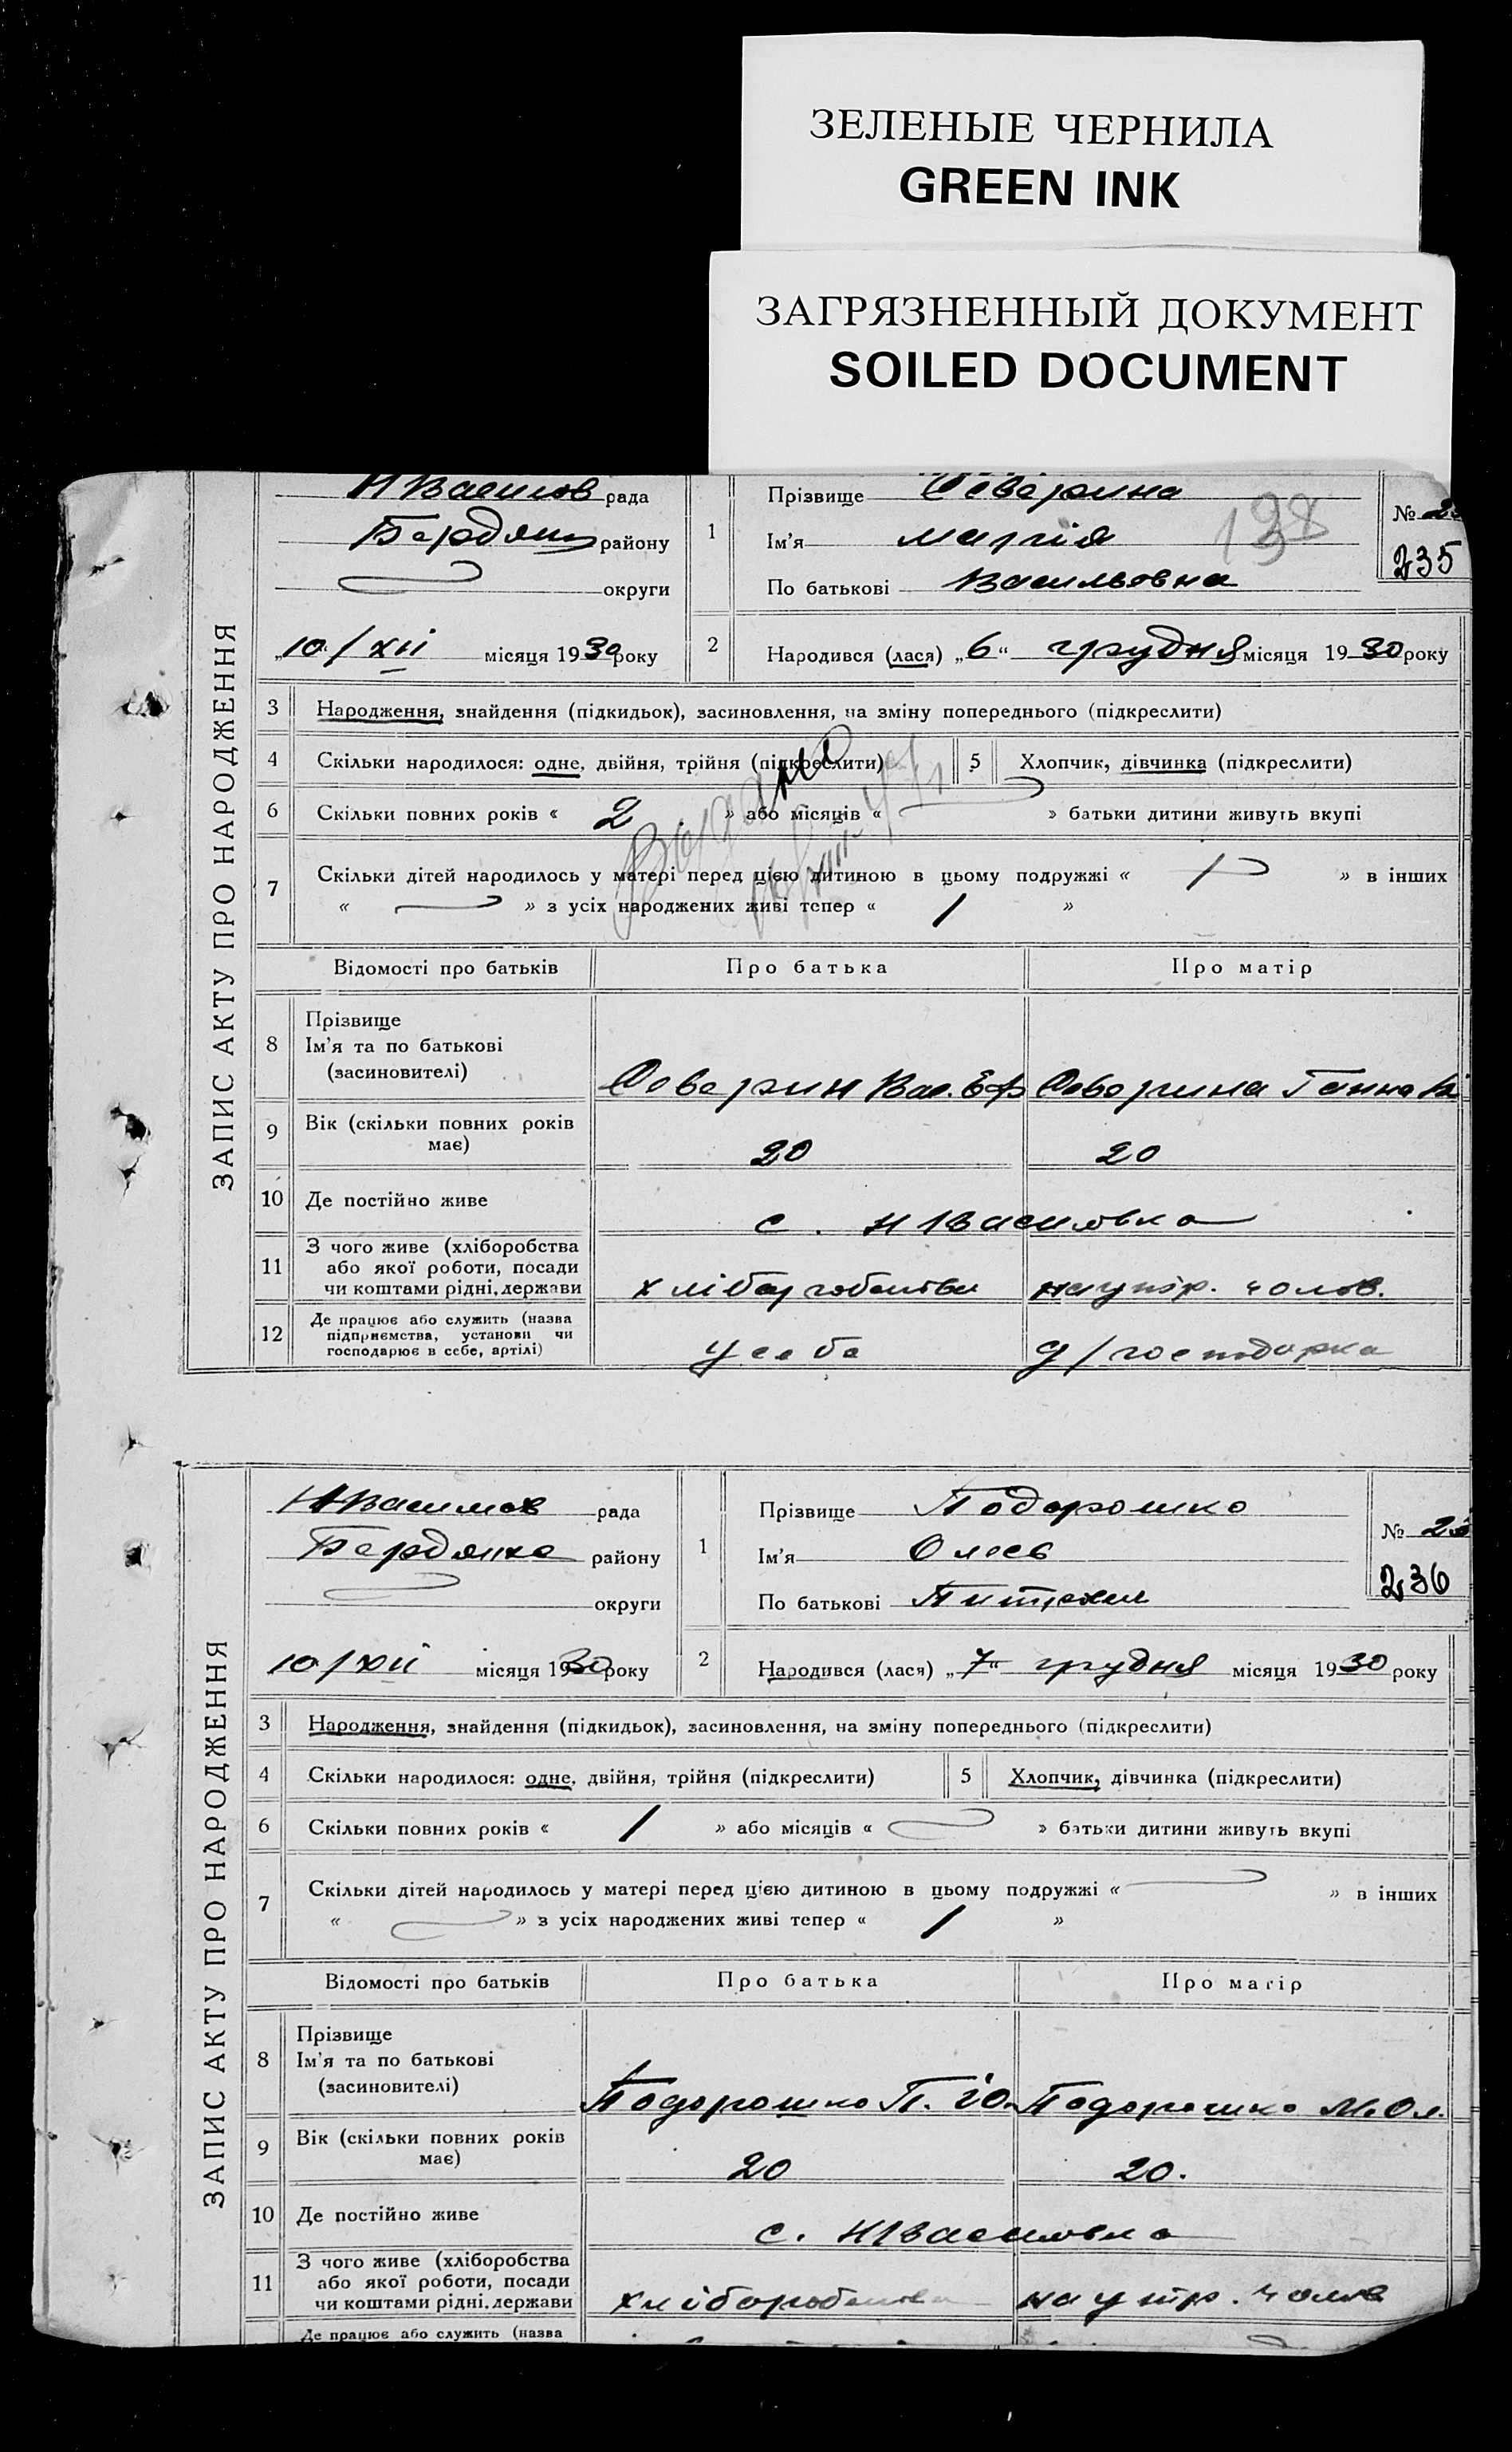 ЗЕЛЕНЫЕ ЧЕРНИЛА
GREEN INK
ЗАГРЯЗНЕННЫЙ ДОКУМЕНТ
SOILED DOCUMENT
ЗАПИС АКТУ ПРО НАРОДЖЕННЯ
Н Василов рада
Бердян району
округи
10/XII місяця 1930 року
1 Прізвище Северина
Ім'я Марія
По батькові Васильовна
138
№
235
2 Народився (лася) „6“ грудня місяця 1930 року
3 Народження, знайдення (підкидьок), засиновлення, на зміну попереднього (підкреслити)
4 Скільки народилося: одне, двійня, трійня (підкреслити) 5 Хлопчик, дівчинка (підкреслити)
6 Скільки повних років « 2 » або місяців « » батьки дитини живуть вкупі
7 Скільки дітей народилось у матері перед цією дитиною в цьому подружжі « 1 » в інших
« » з усіх народжених живі тепер « 1 »
Відомості про батьків Про батька Про матір
8 Прізвище
Ім'я та по батькові
(засиновителі)
Северин Вас. Еф Северина Ганна
9 Вік (скільки повних років має) 20 20
10 Де постійно живе с. Н Василовка
11 З чого живе (хліборобства
або якої роботи, посади
чи коштами рідні, держави
хліборобства на утр. чолов.
12 Де працює або служить (назва
підприємства, установи чи
господарює в себе, артілі)
у себе д/господарка
ЗАПИС АКТУ ПРО НАРОДЖЕННЯ
Н Василов рада
Бердянко району
округи
10/XII місяця 1930 року
1 Прізвище Подорошко
Ім'я
По батькові
№
236
2 Народився (лася) „7“ грудня місяця 1930 року
3 Народження, знайдення (підкидьок), засиновлення, на зміну попереднього (підкреслити)
4 Скільки народилося: одне, двійня, трійня (підкреслити) 5 Хлопчик, дівчинка (підкреслити)
6 Скільки повних років « 1 » або місяців « » батьки дитини живуть вкупі
7 Скільки дітей народилось у матері перед цією дитиною в цьому подружжі « » в інших
« » з усіх народжених живі тепер « 1 »
Відомості про батьків Про батька Про матір
8 Прізвище
Ім'я та по батькові
(засиновителі)
Подорошко П. Подорошко М. Ол.
9 Вік (скільки повних років має) 20 20.
10 Де постійно живе с. Н Василовка
11 З чого живе (хліборобства
або якої роботи, посади
чи коштами рідні, держави
хліборобства на утр. чолов
Де працює або служить (назва